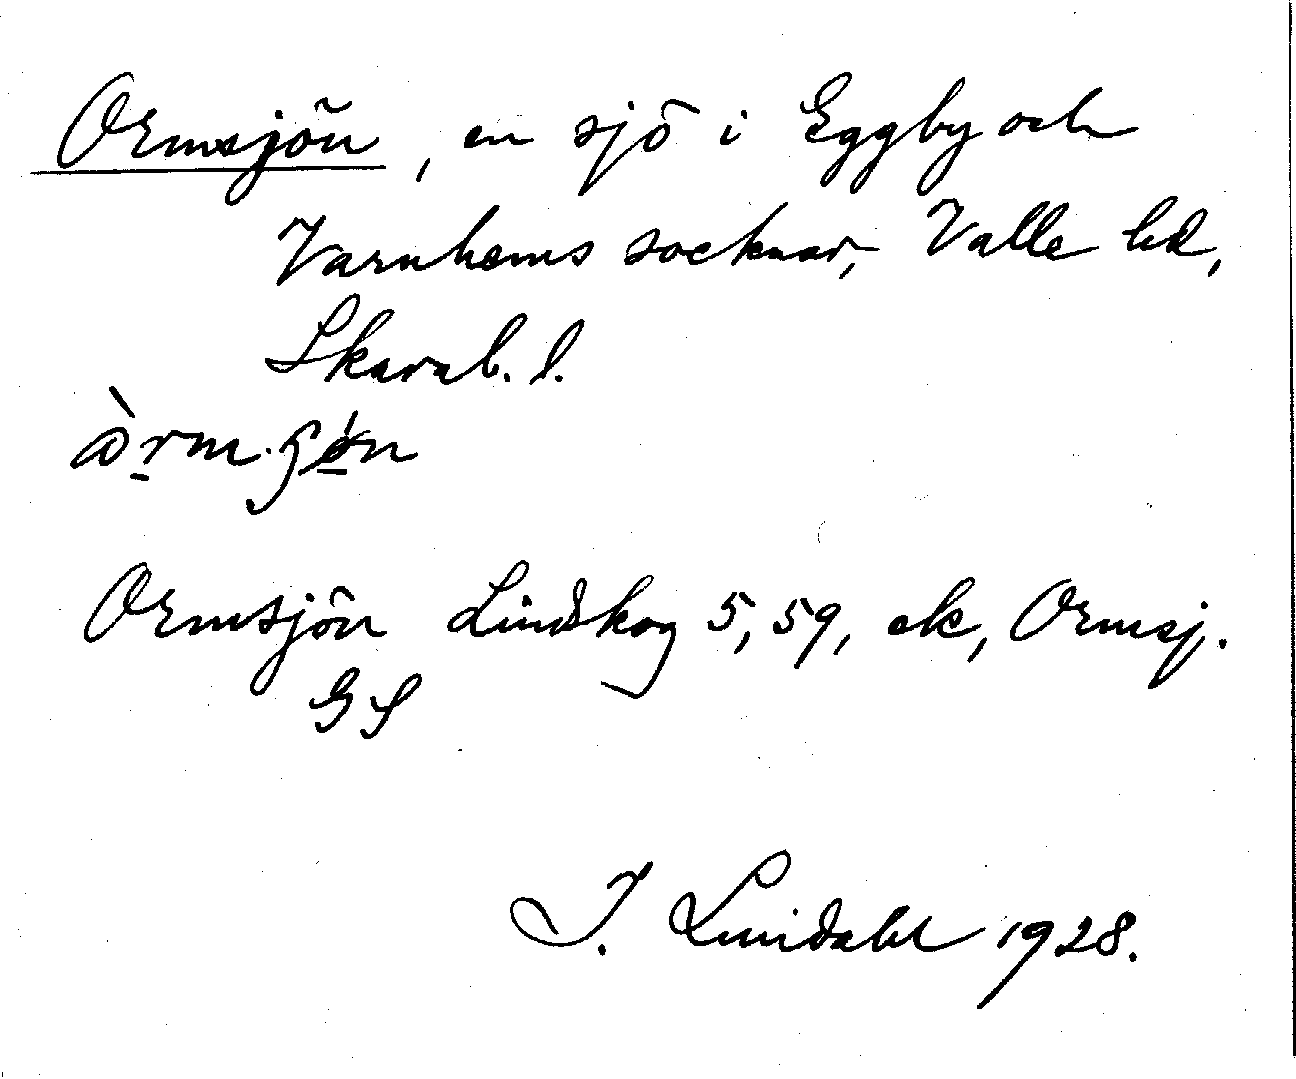 Ormsjön, en sjö i Eggby och
Varnhems socknar, Valle hd,
Skarab. l.
Ormsjön Lindskog 5, 59, ek, Ormsj.
GS
J. Lindahl 1928.